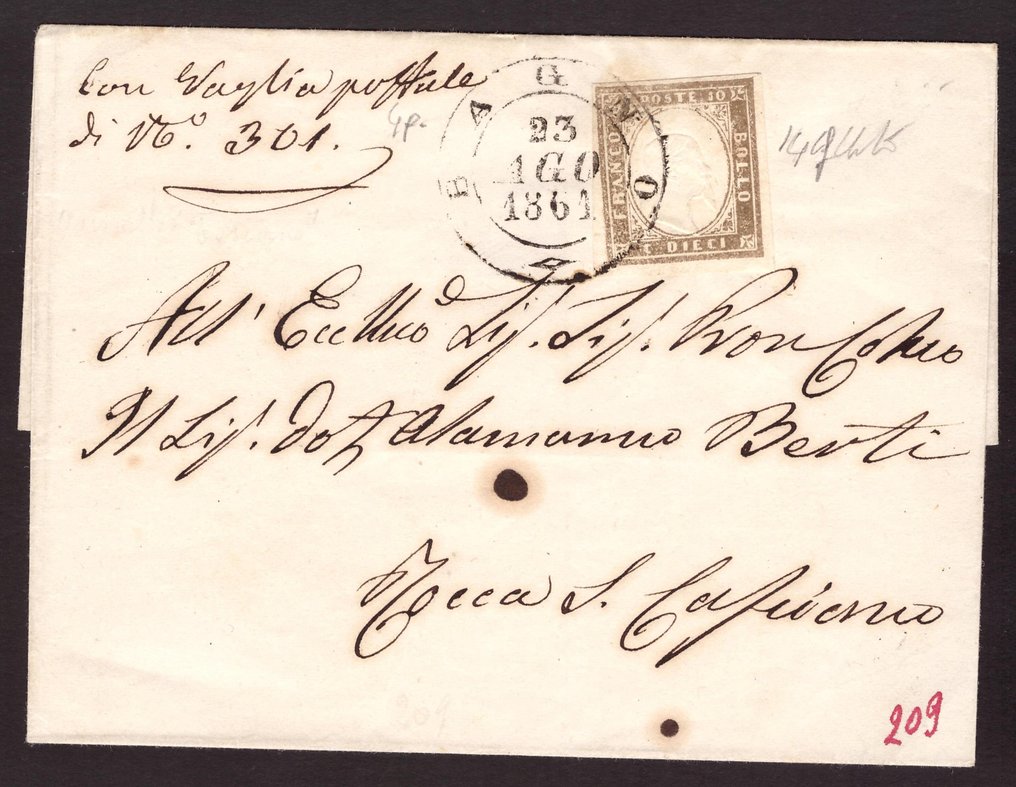 Con Vaglia postale
di N.º 301.
4p.
BAGNO
23
AGO
1861
POSTE 10
FRANCO
BOLLO
C DIECI
All' Eccllmo Sig. Sig. Pron Colmo
Il Sig. Dott Alamanno Berti
Rocca S. Casciano
209